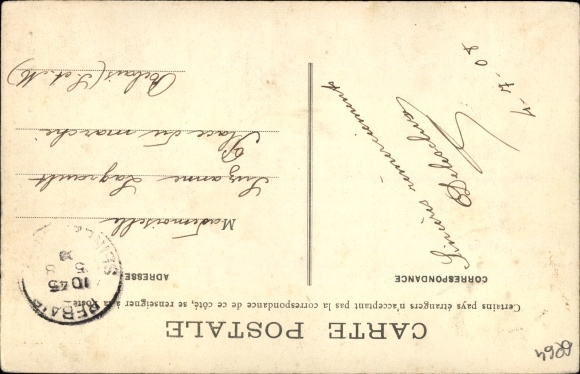 CARTE POSTALE
Certains pays étrangers n'acceptant pas la correspondance de ce côté, se renseigner à la Poste
CORRESPONDANCE
ADRESSE
Sincères remerciements
4-7-08
Mademoiselle
Suzanne Lagrault
Place du marché
Rebais (S. et M.)
REBAIS
10 45
5
SEINE
6264